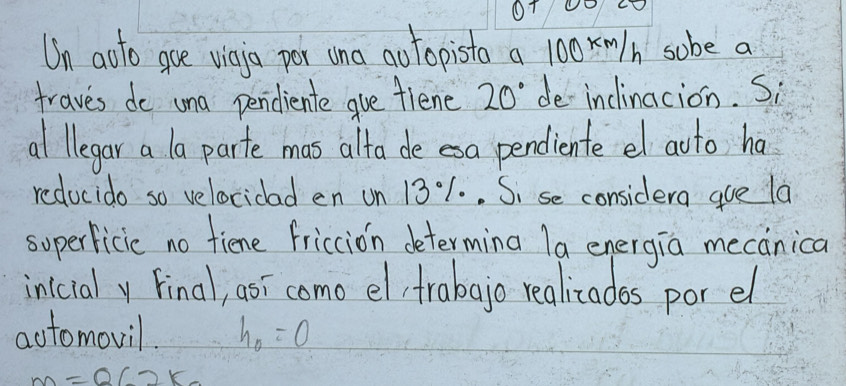 07/06/20
Un auto que viaja por una autopista a 100 km/h sube a
través de una pendiente que tiene 20° de inclinación. Si
al llegar a la parte mas alta de esa pendiente el auto ha
reducido so velocidad en un 13%. Si se considera que la
superficie no tiene fricción determina la energía mecánica
inicial y final, así como el trabajo realizados por el
automovil. h₀ = 0
m =